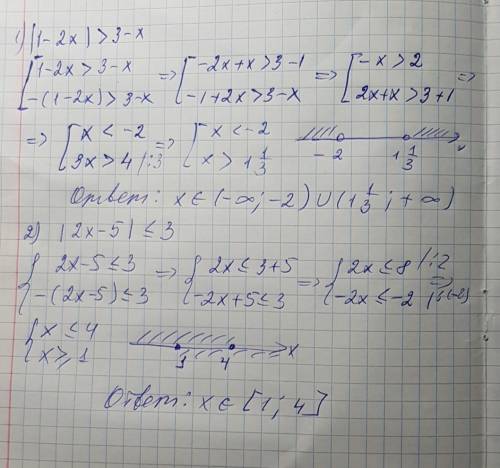 1) |1-2x| > 3-x
[1-2x > 3-x => [-2x+x > 3-1 => [-x > 2 =>
[-(1-2x) > 3-x [-1+2x > 3-x [2x+x > 3+1
=> [x < -2 => [x < -2
[3x > 4 |:3 [x > 1 1/3 -2 1 1/3
Ответ: x ∈ (-∞; -2) ∪ (1 1/3; +∞)
2) |2x-5| ≤ 3
{2x-5 ≤ 3 => {2x ≤ 3+5 => {2x ≤ 8 |:2 =>
{-(2x-5) ≤ 3 {-2x+5 ≤ 3 {-2x ≤ -2 |:(-2)
{x ≤ 4
{x ≥ 1 1 4 x
Ответ: x ∈ [1; 4]